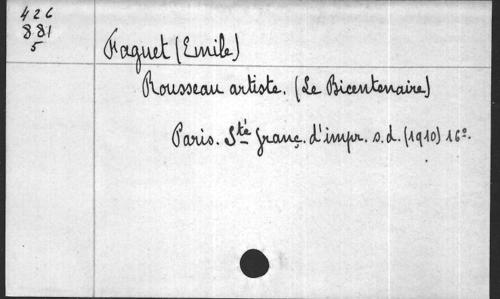 426
881
5
Faguet (Emile)
Rousseau artiste. (Le Bicentenaire)
Paris. Sté franç. d'impr. s.d. (1910) 16º.